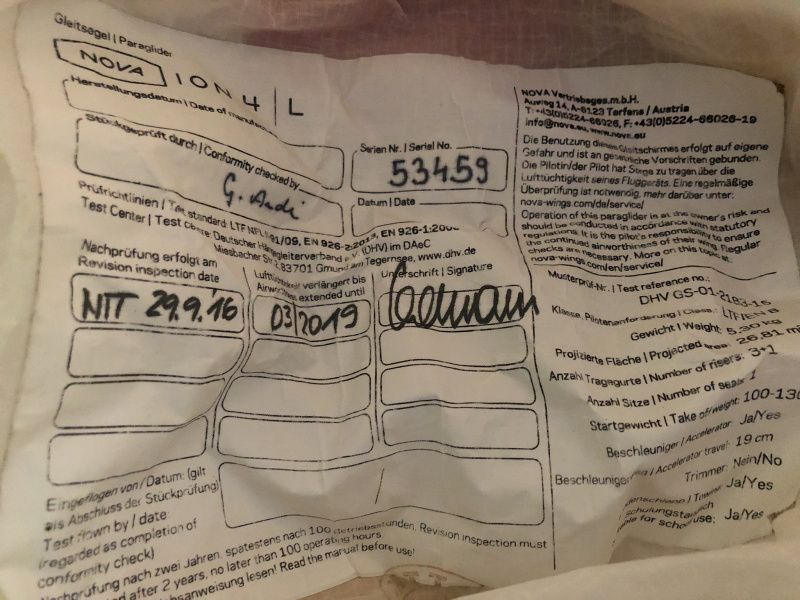 Gleitsegel | Paraglider
NOVA ION 4 | L
Herstellungsdatum | Date of
Stückgeprüft durch | Conformity checked by
G. Andi
Serien Nr. | Serial No.
53459
Datum | Date
Prüfrichtlinien | Test standard: LTF NFL 91/09, EN 926-2:2013, EN 926-1:2006
Test Center | Test Centre: Deutscher Hängegleiterverband e.V. (DHV) im DAeC
Miesbacher Str. 83701 Gmund am Tegernsee, www.dhv.de
Nachprüfung erfolgt am
Revision inspection date
Lufttüchtigkeit verlängert bis
Airworthiness extended until
Unterschrift | Signature
NTT 29.9.16
03/2019
Eingeflogen von / Datum: (gilt
als Abschluss der Stückprüfung)
Test flown by / date:
(regarded as completion of
conformity check)
/
Nachprüfung nach zwei Jahren, spätestens nach 100 Betriebsstunden, Revision inspection must
after 2 years, no later than 100 operating hours
lesen! Read the manual before use!
NOVA Vertriebsges.m.b.H.
Auweg 14, A-6123 Terfens / Austria
T: +43(0)5224-66026, F: +43(0)5224-66026-19
info@nova.eu, www.nova.eu
Die Benutzung dieses Gleitschirmes erfolgt auf eigene
Gefahr und ist an gesetzliche Vorschriften gebunden.
Die Pilotin/der Pilot hat Sorge zu tragen über die
Lufttüchtigkeit seines Fluggeräts. Eine regelmäßige
Überprüfung ist notwendig, mehr darüber unter:
nova-wings.com/de/service/
Operation of this paraglider is at the owner's risk and
should be conducted in accordance with statutory
regulations. It is the pilot's responsibility to ensure
the continued airworthiness of their wing. Regular
checks are necessary. More on this topic at:
nova-wings.com/en/service/
Musterprüf-Nr. / Test reference no.:
DHV GS-01-2183-15
Klasse, Pilotenanforderung / Class.: LTF/EN B
Gewicht | Weight: 5,30 kg
Projizierte Fläche | Projected area: 26,81
Anzahl Tragegurte | Number of risers: 3+1
Anzahl Sitze | Number of seats: 1
Startgewicht | Take of/weight: 100-130
Beschleuniger / Accelerator: Ja/Yes
Beschleuniger / Accelerator travel: 19 cm
Trimmer: Nein/No
Ja/Yes
for school use: Ja/Yes